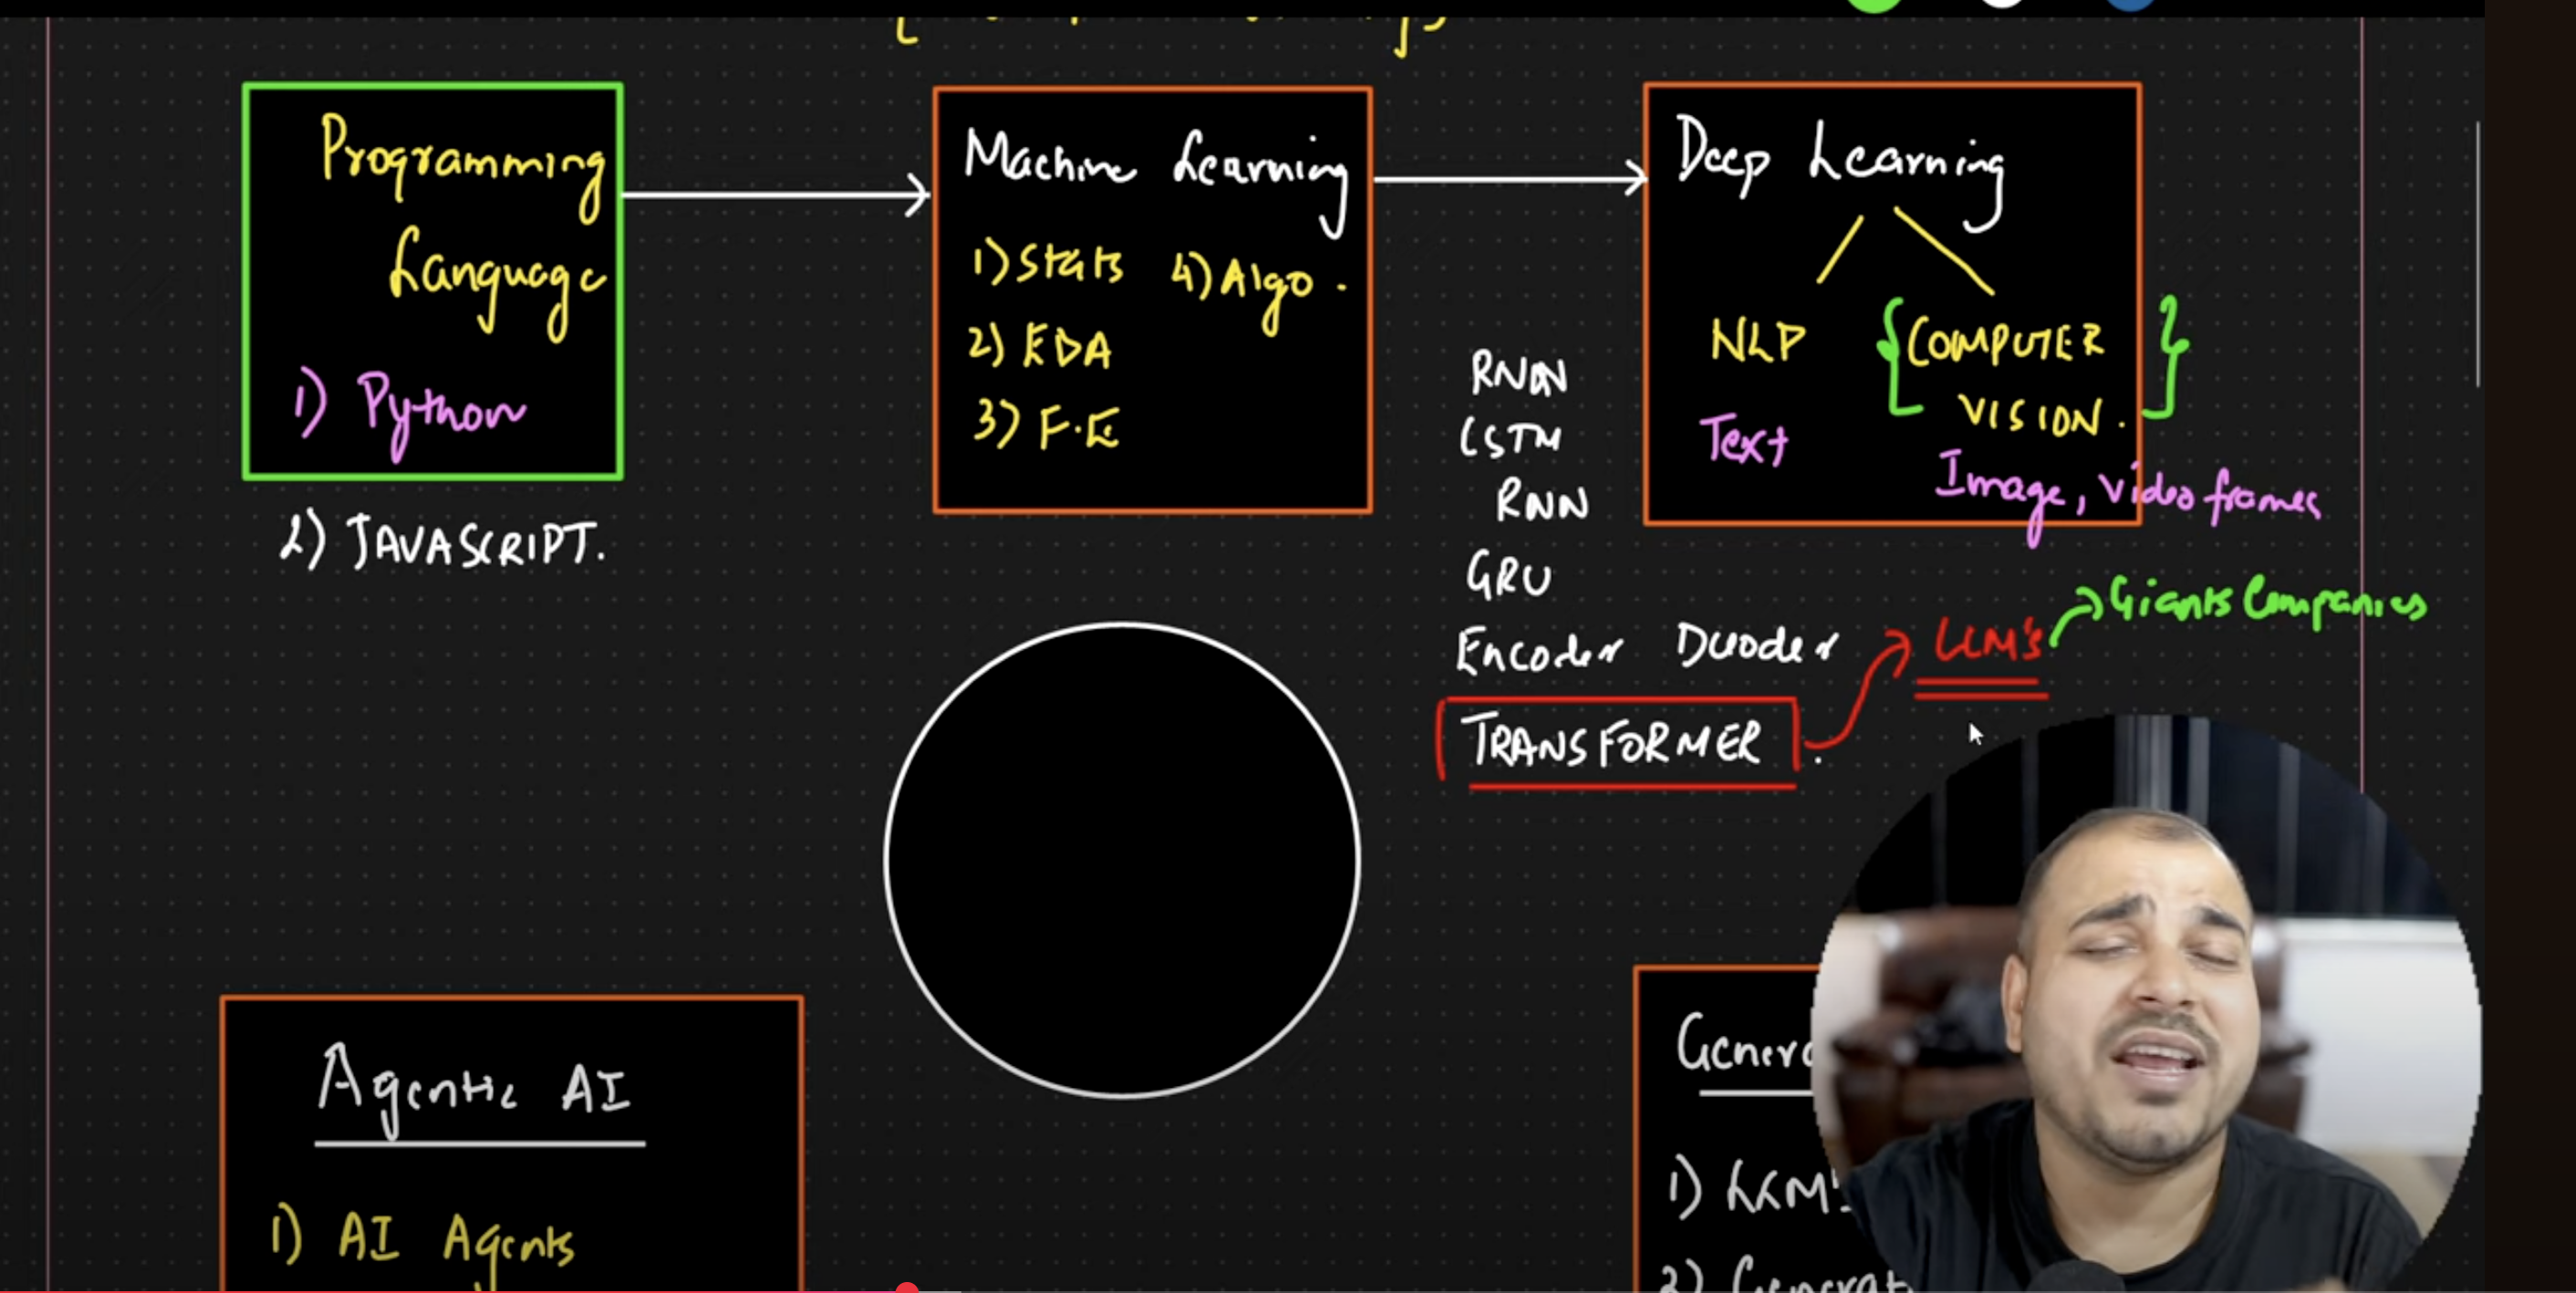 Programming
Language
1) Python
2) JAVASCRIPT.
Machine Learning
1) Stats 4) Algo.
2) EDA
3) F.E
Deep Learning
NLP
COMPUTER
VISION.
Text
Image, Video frames
RNN
LSTM
RNN
GRU
Encoder Decoder
TRANSFORMER.
LLM's
Giants Companies
Agentic AI
1) AI Agents
1) LLM's
2)